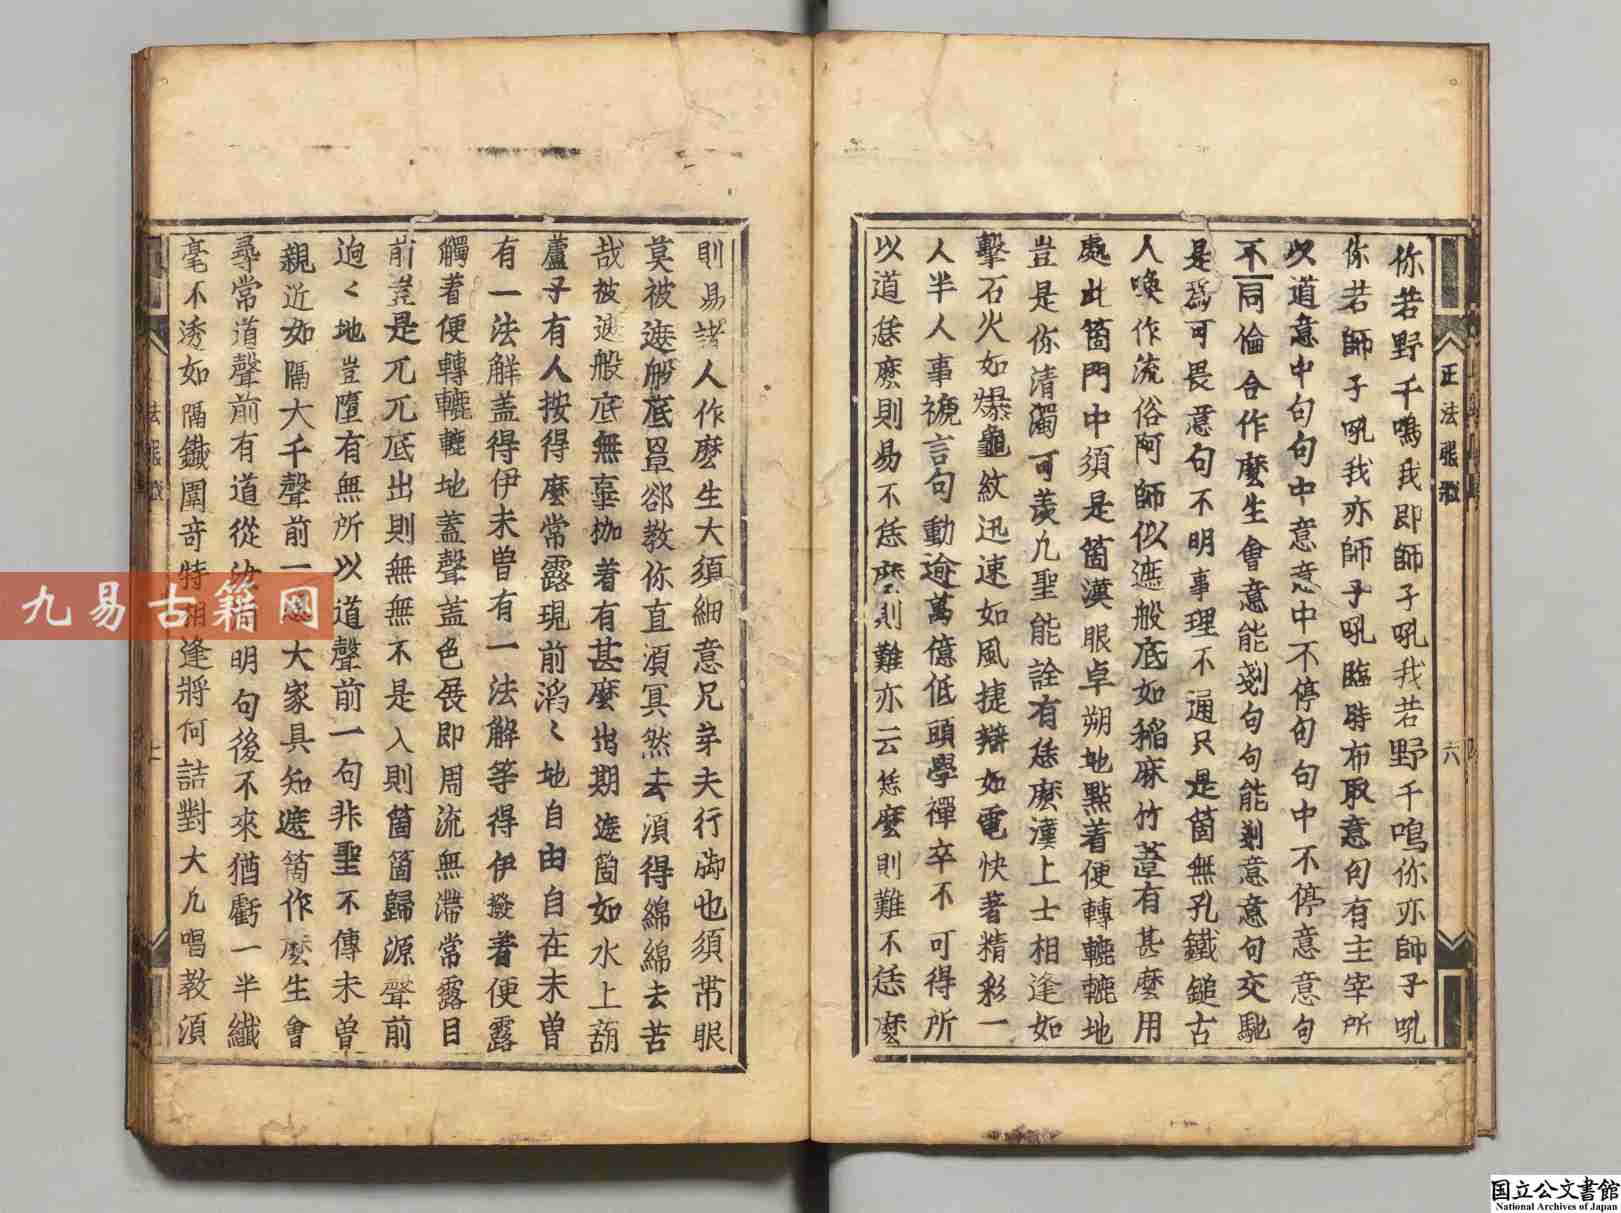 正法眼藏
六
你若野千鳴我即師子吼我若野千鳴你亦師子吼
你若師子吼我亦師子吼臨時布取意句有主宰所
以道意中句句中意意中不停句句中不停意意句
不同倫合作麽生會意能剗句句能剗意意句交馳
是爲可畏意句不明事理不通只是箇無孔鐵鎚古
人喚作流俗阿師似遮般底如稲麻竹葦有甚麽用
處此箇門中須是箇漢眼卓朔地點着便轉轆轆地
豈是你清濁可羨凢聖能詮有恁麽漢上士相逢如
擊石火如爆龜紋迅速如風捷辯如電快著精彩一
人半人事褫言句動逾萬億低頭學禪卒不可得所
以道恁麽則易不恁麽則難亦云恁麽則難不恁麽
則易諸人作麽生大須細意兄弟夫行脚也須帶眼
莫被遮般底罩郤教你直須冥然去須得綿綿去苦
哉被遮般底無辜枷着有甚麽出期遮箇如水上葫
蘆子有人按得麽常露現前滔〻地自由自在未曽
有一法解蓋得伊未曽有一法解等得伊撥着便露
觸着便轉轆轆地蓋聲蓋色展即周流無滯常露目
前豈是兀兀底出則無無不是入則箇箇歸源聲前
逈〻地豈墮有無所以道聲前一句非聖不傳未曽
親近如隔大千聲前一大家具知遮箇作麽生會
尋常道聲前有道從明句後不來猶虧一半纖
毫不透如隔鐵圍竒特相逢將何詰對大凢唱教須
九易古籍网
国立公文書館
National Archives of Japan